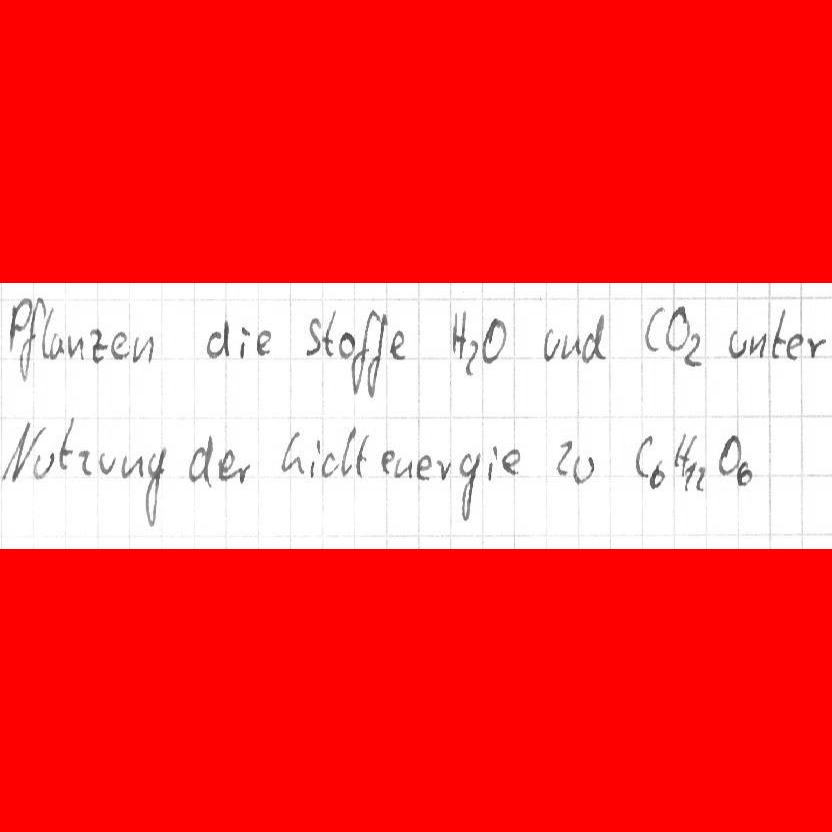 Pflanzen die Stoffe H₂O und CO₂ unter
Nutzung der Lichtenergie zu C₆H₁₂O₆